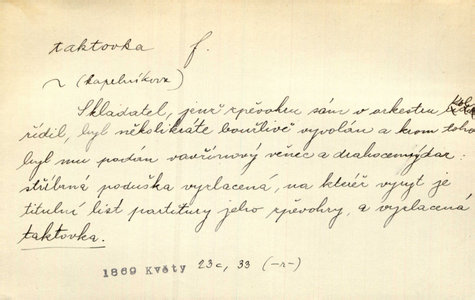 taktovka f.
~ (kapelníkova)
Skladatel, jenž zpěvohru sám v orkestru
řídil, byl několikráte bouřlivě vyvolán a krom toho
byl mu podán vavřínový věnec a drahocenný dar:
stříbrná poduška vyzlacená, na kteréž vyryt je
titulní list partitury jeho zpěvohry, a vyzlacená
taktovka.
1869 Květy 23c, 33 (-r-)